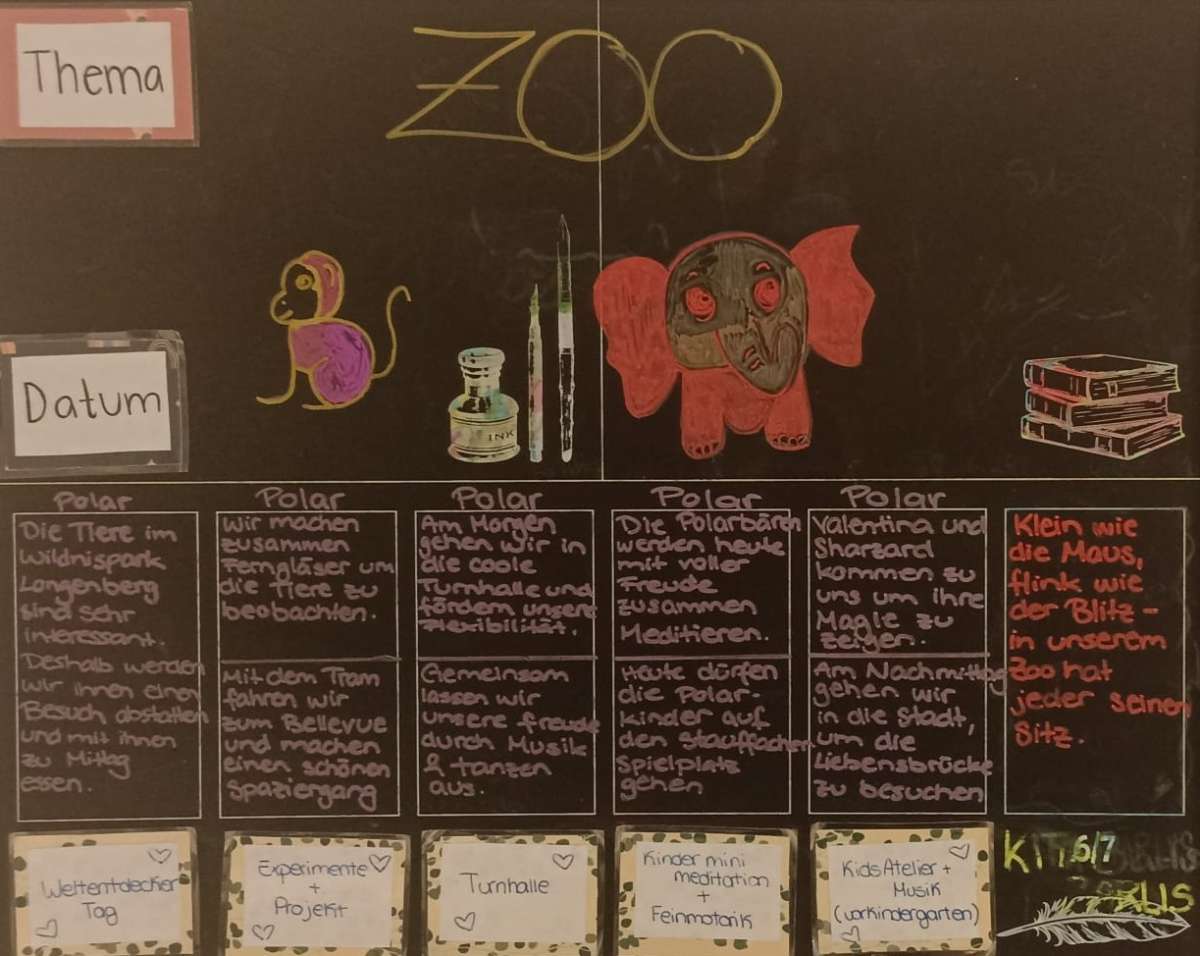 Thema
ZOO
Datum
INK
Polar
Die Tiere im
Wildnispark
Langenberg
sind sehr
interessant.
Deshalb werden
wir ihnen einen
Besuch abstatten
und mit ihnen
zu Mittag
essen.
Weltentdecker
Tag
Polar
Wir machen
zusammen
Ferngläser um
die Tiere zu
beobachten.
Mit dem Tram
fahren wir
zum Bellevue
und machen
einen schönen
Spaziergang
Experimente
+
Projekt
Polar
Am Morgen
gehen wir in
die coole
Turnhalle und
fördern unsere
Flexibilität.
Gemeinsam
lassen wir
unsere freude
durch Musik
& tanzen
aus.
Turnhalle
Polar
Die Polarbären
werden heute
mit voller
Freude
zusammen
Meditieren.
Heute dürfen
die Polar-
kinder auf
den Stauffacher
Spielplatz
gehen
Kinder mini
meditation
+
Feinmotorik
Polar
Valentina und
Sharzard
kommen zu
uns um ihre
Magie zu
zeigen.
Am Nachmittag
gehen wir
in die Stadt,
um die
Liebensbrücke
zu besuchen
Kids Atelier +
Musik
(vorkindergarten)
Klein wie
die Maus,
flink wie
der Blitz -
in unserem
Zoo hat
jeder seinen
Sitz.
6/7